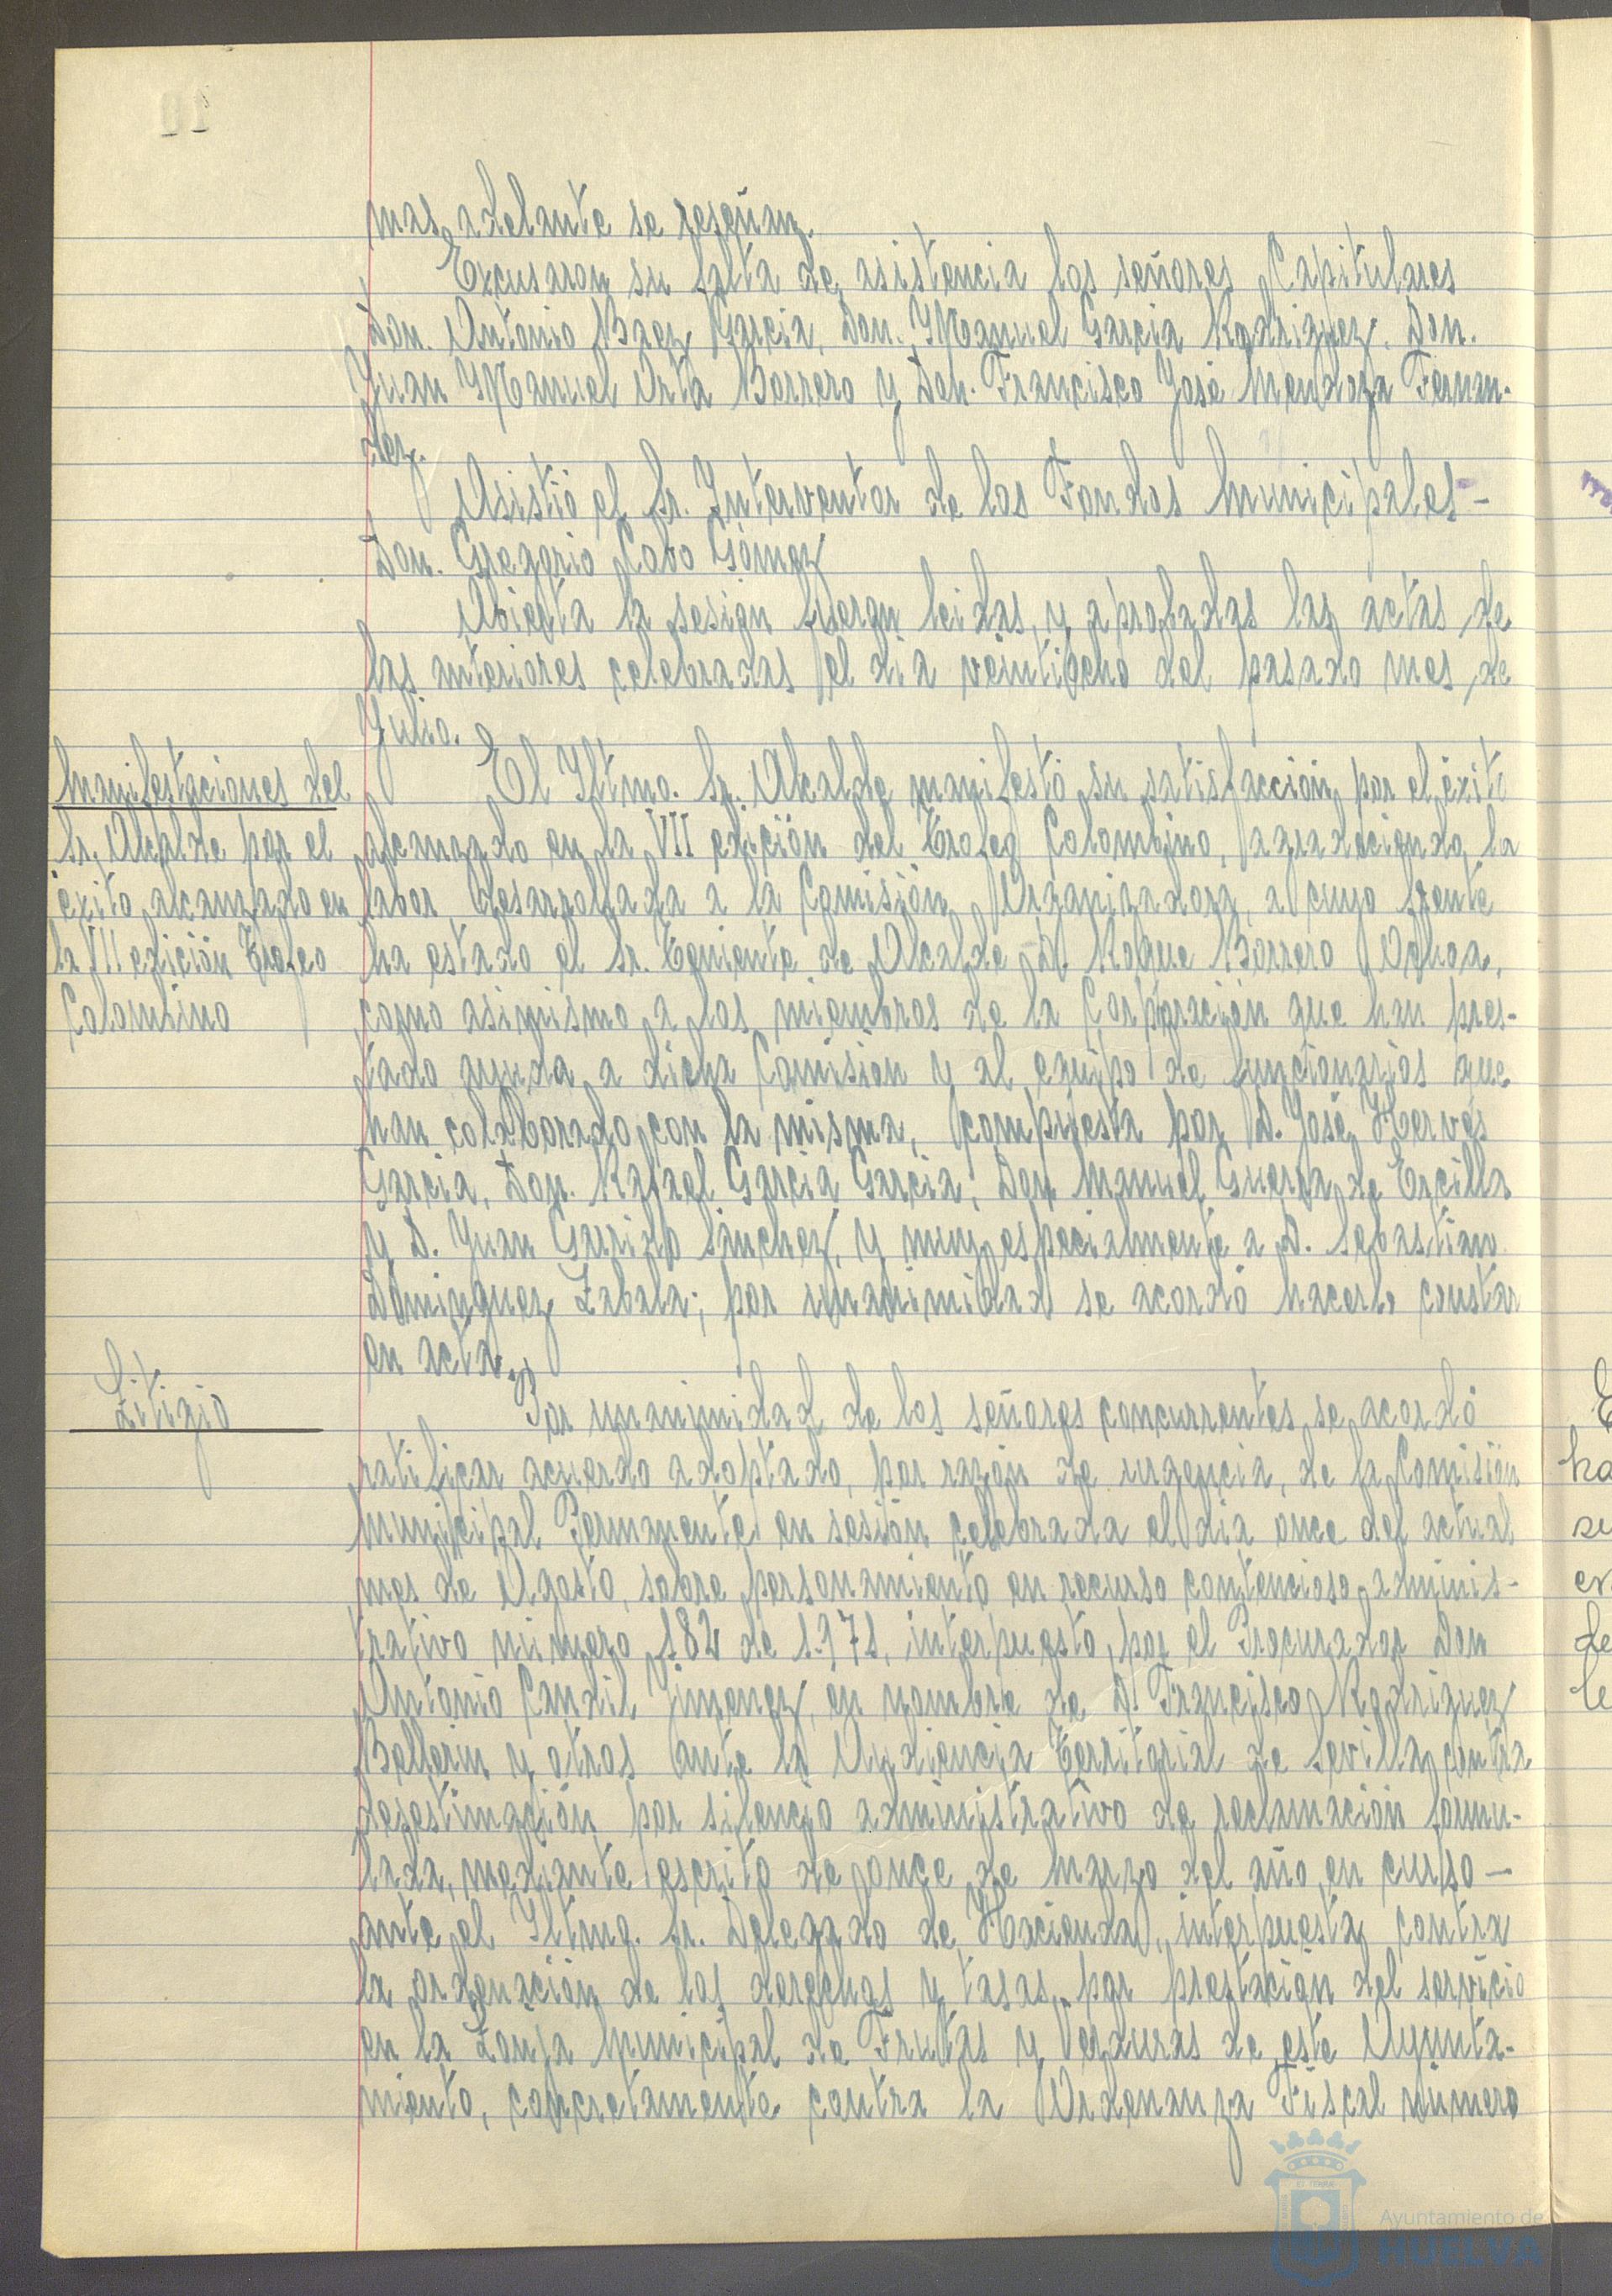 mas adelante se reseñan.
Excusaron su falta de asistencia los señores Capitulares
Don. Antonio Baez Garcia, Don. Manuel Garcia Rodriguez, Don.
Juan Manuel Orta Borrero y Don. Francisco José Mendoza Fernan-
dez.
Asistió el Sr. Interventor de los Fondos Municipales-
Don. Gregorio Cabo Gómez
Abierta la sesion fueron leidas y aprobadas las actas de
las anteriores celebradas el dia veintiocho del pasado mes de
Julio.
Manifestaciones del
Sr. Alcalde por el
éxito alcanzado en
la VII edición Trofeo
Colombino
El Iltmo. Sr. Alcalde manifestó su satisfacción por el éxito
alcanzado en la VII edición del Trofeo Colombino, agradeciendo la
labor desarrollada a la Comisión Organizadora, a cuyo frente
ha estado el Sr. Teniente de Alcalde D. Roque Borrero Ochoa,
como asimismo a los miembros de la Corporación que han pres-
tado ayuda a dicha Comisión y al equipo de funcionarios que
han colaborado con la misma, compuesta por D. José Hervás
Garcia, Don. Rafael Garcia Garcia, Don Manuel Guerra de Ercilla
y D. Juan Garrido Sánchez, y muy especialmente a D. Sebastian
Dominguez Zabala; por unanimidad se acordó hacerlo constar
en acta.
Litigio
Por unanimidad de los señores concurrentes se acordó
ratificar acuerdo adoptado, por razón de urgencia, de la Comisión
Municipal Permanente en sesión celebrada el dia once del actual
mes de Agosto, sobre personamiento en recurso contencioso adminis-
trativo número 182 de 1.971, interpuesto por el Procurador Don
Antonio Candil Jimenez, en nombre de D. Francisco Rodriguez
Bellerin y otros ante la Audiencia Territorial de Sevilla contra
desestimación por silencio administrativo de reclamación formu-
lada, mediante escrito de once de marzo del año en curso-
ante el Iltmo. Sr. Delegado de Hacienda, interpuesta contra
la ordenación de los derechos y tasas por prestación del servicio
en la Lonja Municipal de Frutas y Verduras de este Ayunta-
miento, concretamente contra la Ordenanza Fiscal número
Ayuntamiento de
HUELVA